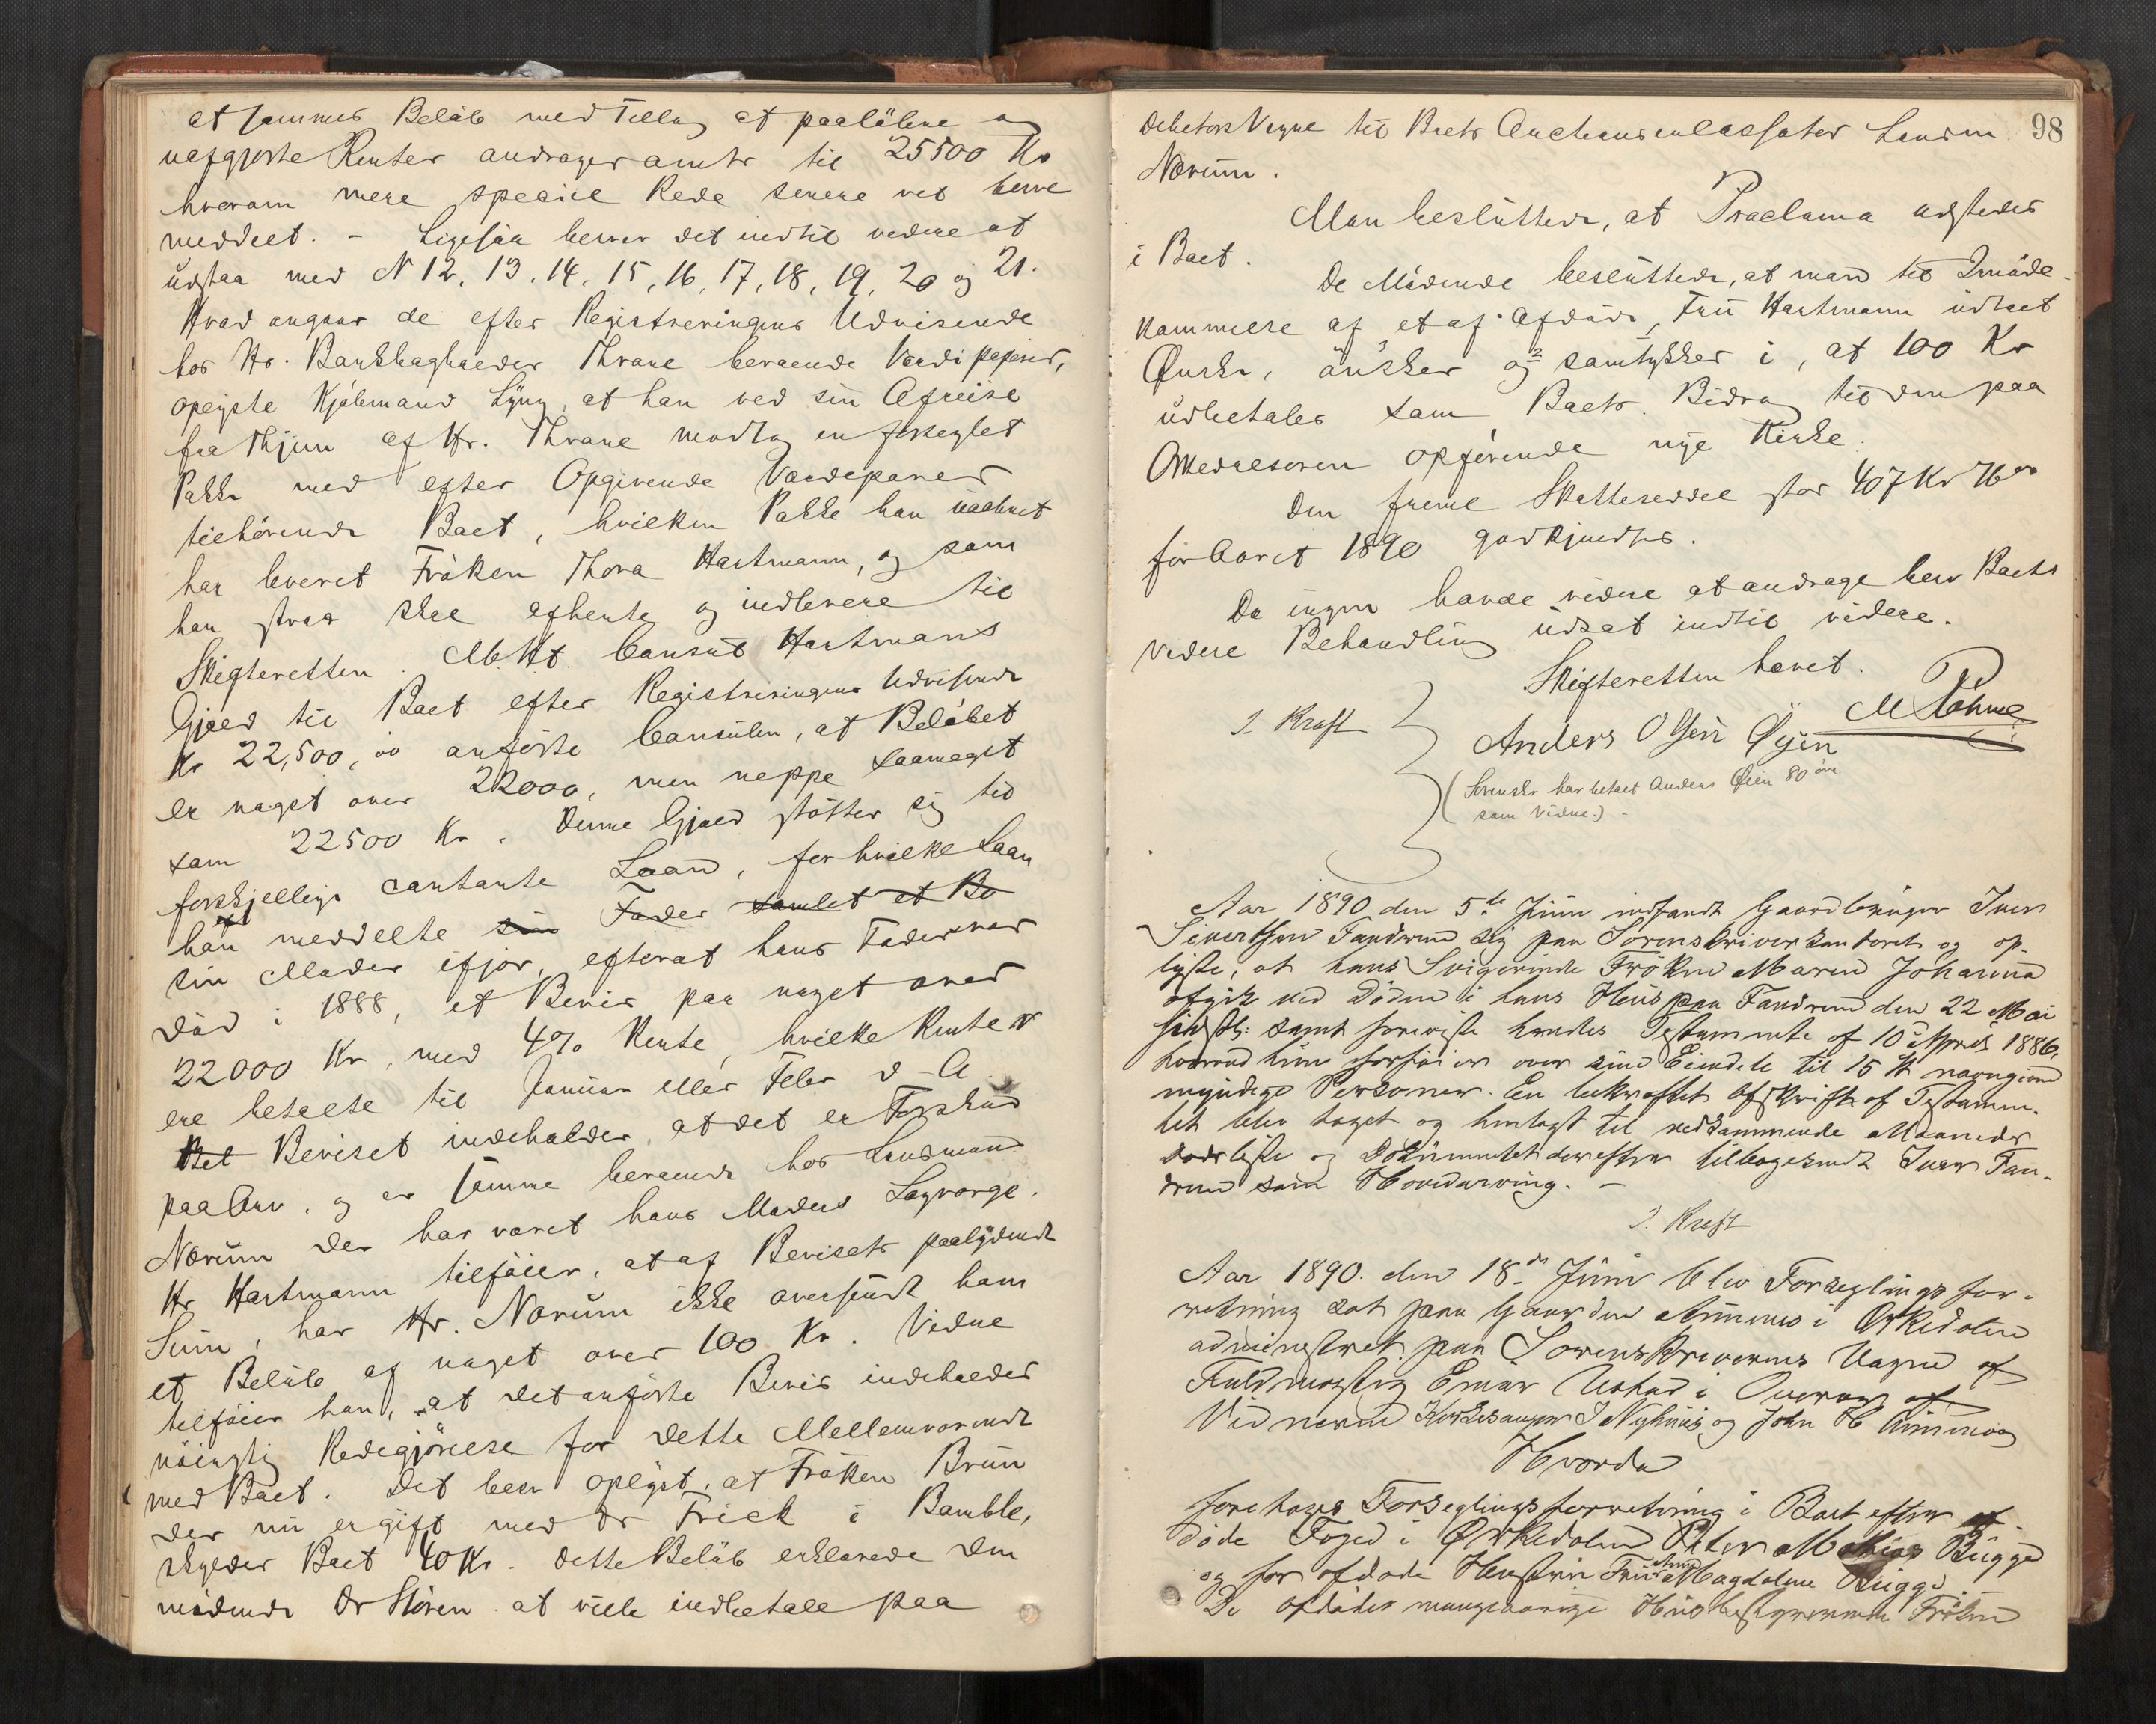 at sammes Beløb med Tillæg af paaløbne og
uafgjorte Renter andrager amtr til 25500 Kr
hvorom mere speciel Rede senere vil blive
meddelt. - Ligesaa bliver det indtil videre at
udstaa med N 12, 13, 14, 15, 16, 17, 18, 19, 20 og 21.
Hvad angaar de efter Registreringens Udvisende
hos Hr. Bankbogholder Thrane beroende Værdipapirer,
oplyste Kjøbmand Lyng, at han ved sin Afreise
fra Thjem af Hr. Thrane modtog en forseglet
Pakke med efter Opgivende Værdipapirer
tilhørende Boet, hvilken Pakke han uaabnet
har leveret Frøken Thora Hartmann, og som
han strax skal afhente og indlevere til
Skifteretten. Mht. Consul Hartmans
Gjæld til Boet efter Registreringens Udvisende
Kr 22,500,00 anførte Consulen, at Beløbet
er noget over 22000, men neppe saameget
som 22500 Kr. Denne Gjæld støtter sig til
forskjellige contante Laan, for hvilke Laan
han meddelte sin Fader samlet et Bo
sin Moder ifjor, efterat hans Fader var
død i 1888, et Bevis paa noget over
22000 Kr, med 4% Rente, hvilke Renter
ere betalte til Januar eller Febr d. A.
Bet Beviset indeholder, at det er Forskud
paa Arv, og er samme beroende hos Lensmand
Norum der har været hans Moders Lagværge.
Hr Hartmann tilføier, at af Bevisets paalydende
Sum, har Hr. Norum ikke oversendt ham
et Beløb af noget over 100 Kr. Videre
tilføier han, at det anførte Bevis indeholder
nøiagtig Redegjørelse for dette Mellemværende
med Boet. Det blev oplyst, at Frøken Brun
der nu er gift med Dr Frick i Bamble,
skylder Boet 40 Kr. Dette Beløb erklærede den
mødende Dr Støren at ville indbetale paa
98
Debetors Vegne til Boets Auctionsincassator Lensm
Norum.
Man besluttede, at Proclama udstedes
i Boet.
De Mødende besluttede, at man til Imøde-
kommelse af et af Afdøde, Fru Hartmann udtalt
Ønske, ønsker og samtykker i, at 100 Kr
udbetales som Boets Bidrag til den paa
Orkedalsøren opførende nye Kirke.
Den freml Skatteseddel stor 407 Kr 76 ør
for Aaret 1890 godkjendtes.
Da ingen havde videre at andrage blev Boets
videre Behandling udsat indtil videre.
Skifteretten hævet.
J. Kraft
Anders Olsen Øyen
(Sorenskr har betalt Anders Øien 80 øre
som Vidne.) -
Aar 1890 den 5te Juni indfandt Gaardbruger Iver
Sivertsen Fandrem sig paa Sorenskriverkontoret og op-
lyste, at hans Svigerinde Frøken Maren Johanna
afgik ved Døden i hans Hus paa Fandrem den 22 Mai
sidstl. samt foreviste hendes Testamente af 10 April 1886,
hvorved hun forføier over sine Eiendele til 15 st navngivne
myndige Personer. En bekræftet Afskrift af Testamen-
tet blev taget og henlagt til vedkommende Maaneds
Dødsliste og Dokumentet derefter tilbagesendt Iver Fan-
drem som Hovedarving. -
J. Kraft
Aar 1890. den 18de Juni blev Forseglingsfor-
retning sat paa Gaarden Aunmo i Orkedalen
administreret paa Sorenskriverens Vegne af
Fuldmægtig Einar i Overvær af
Vidnerne Kirkesanger J Nyhuus og John
Hvorda
foretoges Forseglingsforretning i Boet efter af-
døde Foged i Orkedalen Peter Mathias Bügge
og før afdøde Hustru Fru Anne Magdalene Bügge.
De afdødes mangeaarige Husbestyrerinde Frøken